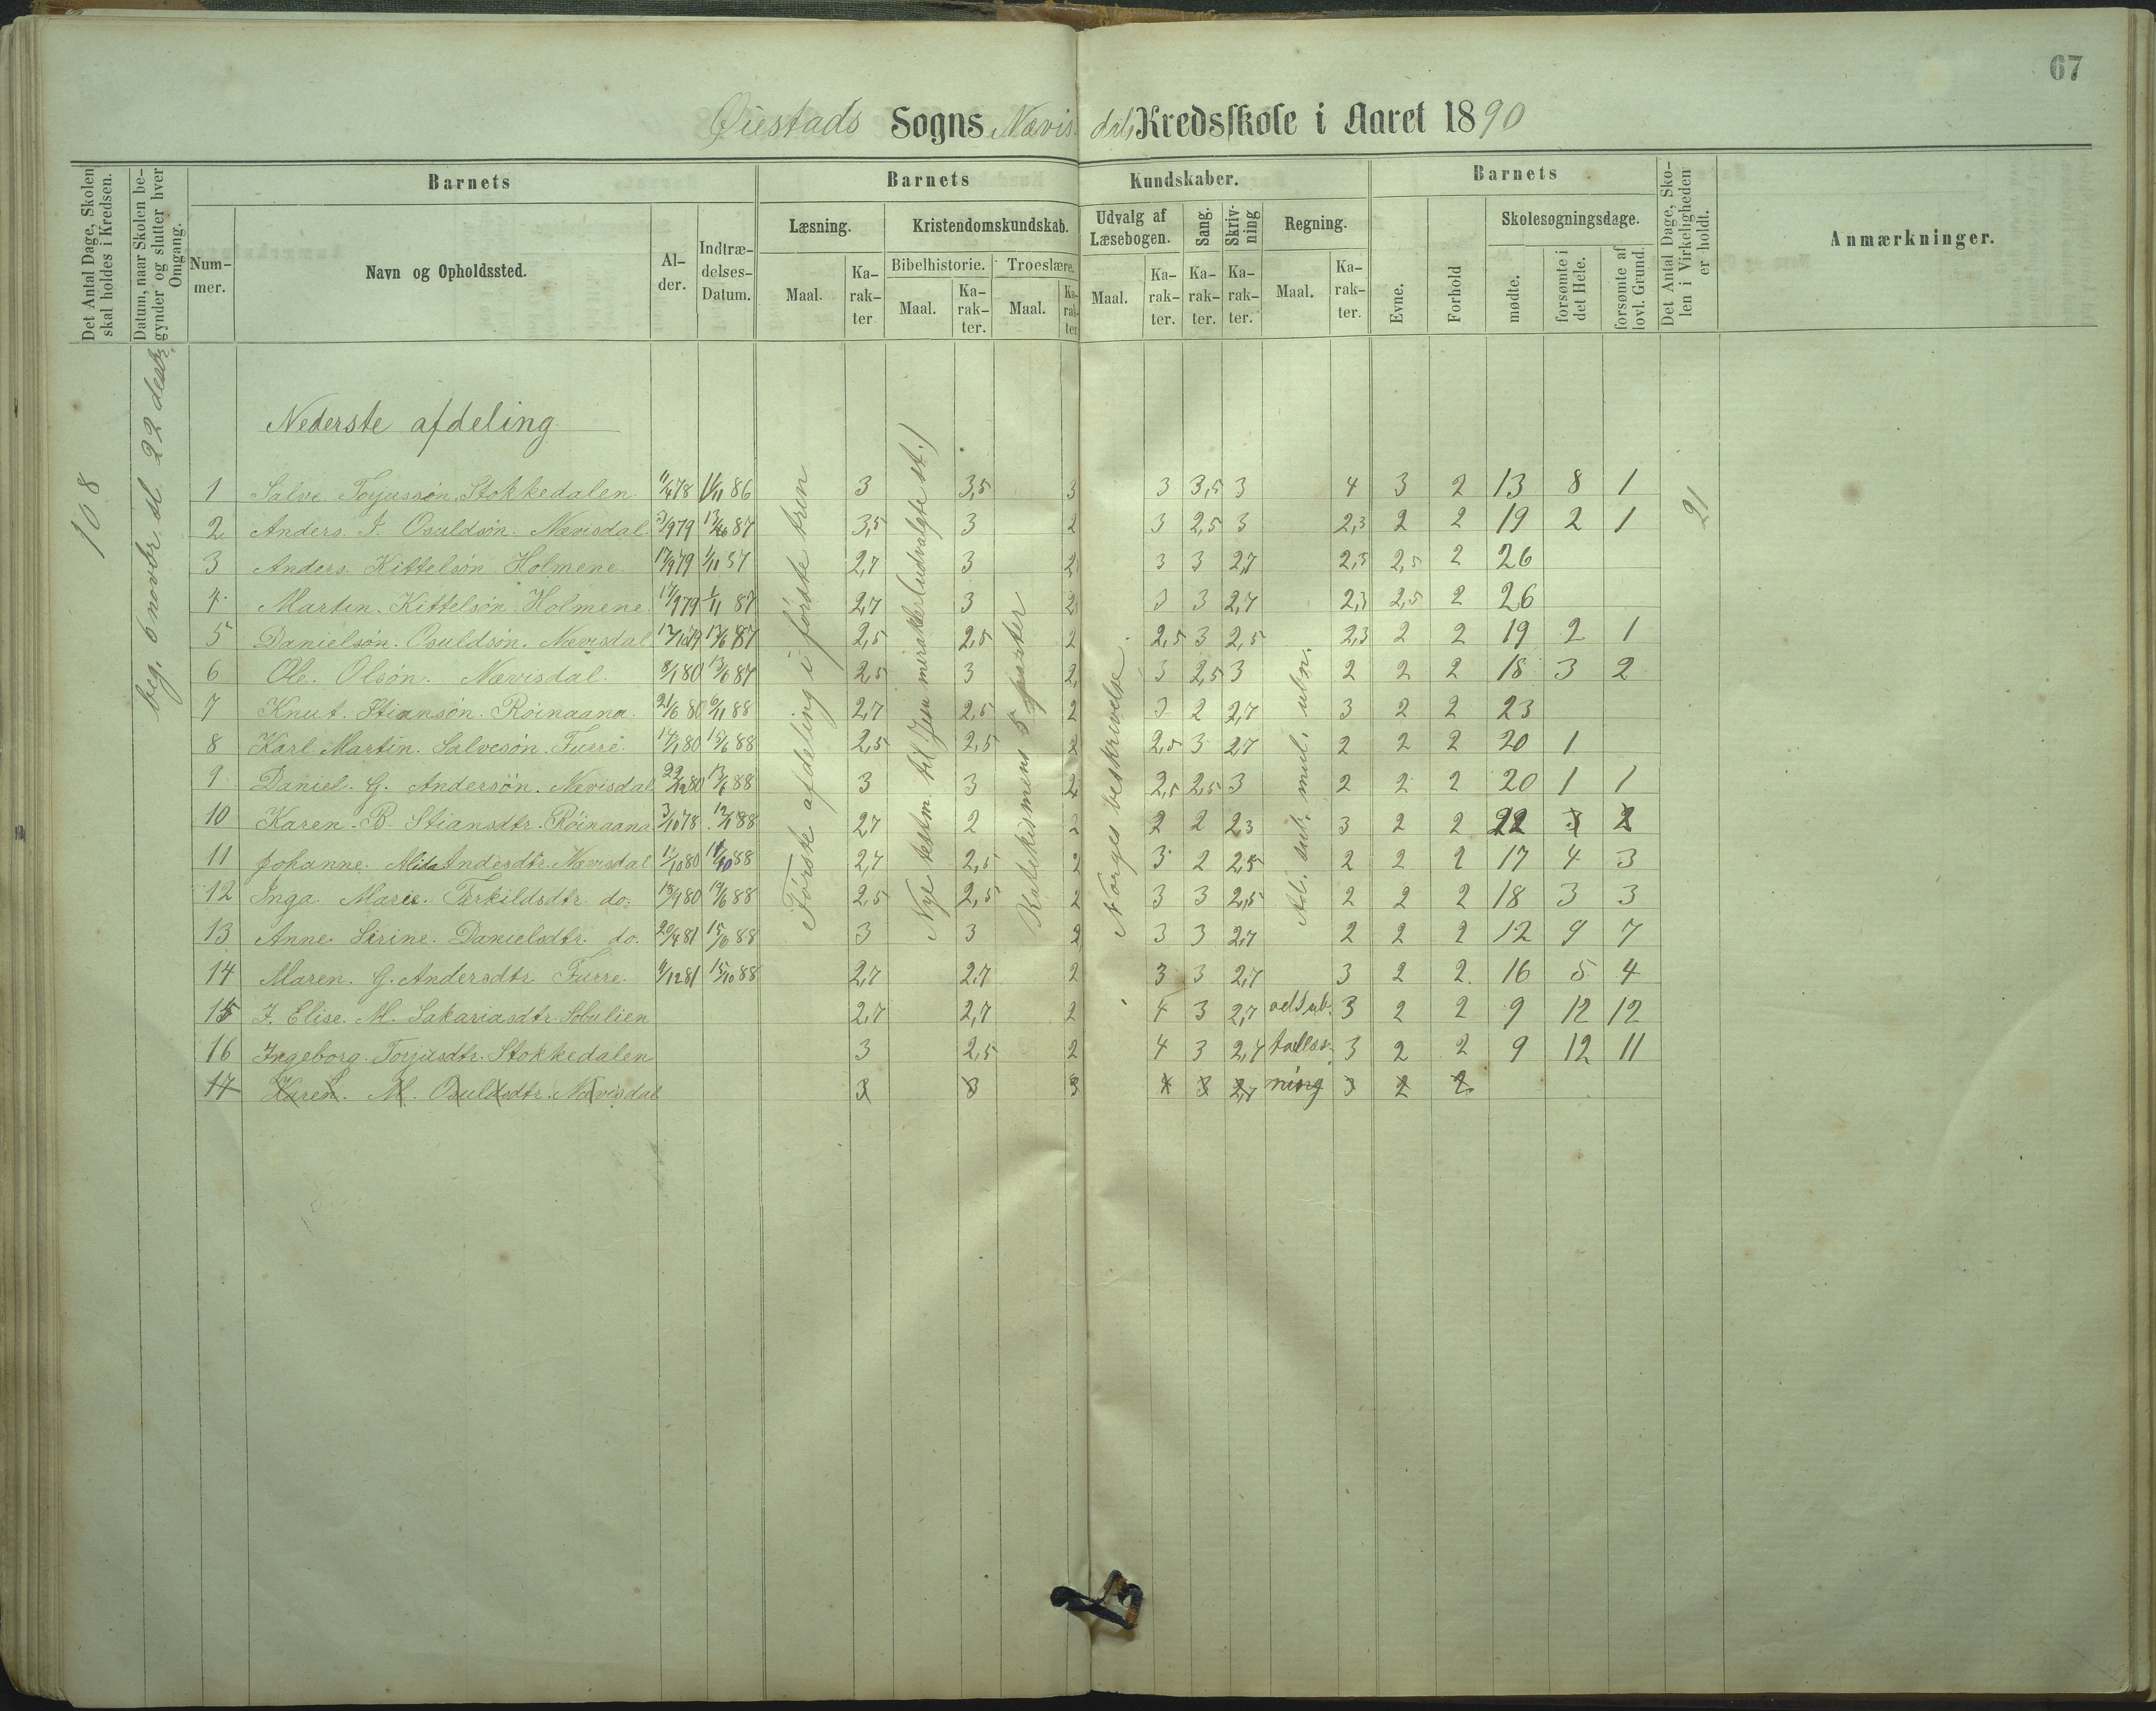 67
Øiestads Sogns Nævisdals Kredsskole i Aaret 1890
Det Antal Dage, Skolen skal holdes i Kredsen.
Datum, naar Skolen begynder og slutter hver Omgang.
Barnets
Barnets
Kundskaber.
Barnets
Det Antal Dage, Skolen i Virkeligheden er holdt.
Anmærkninger.
Nummer.
Navn og Opholdssted.
Alder.
Indtrædelses-Datum.
Læsning.
Kristendomskundskab.
Udvalg af Læsebogen.
Sang.
Skrivning
Regning.
Evne.
Forhold
Skolesøgningsdage.
Bibelhistorie.
Troeslære.
Maal.
Karakter
Maal.
Karakter.
Maal.
Karakter
Maal.
Karakter.
Karakter.
Karakter.
Maal.
Karakter.
mødte.
forsømte i det Hele.
forsømte af lovl. Grund.
108
beg. 6 novbr. sl. 22 desbr.
Nederste afdeling
Første afdeling i første trin
Nye testm. til Jesu mirakler (udvalgte st.)
Katekismens 5 parter
Norges beskrivelse
Ad. sub. mul. 
21
1 Salve Torjussøn. Stokkedalen. 11/4 78 1/11 86 3 3,5 3 3 3,5 3 4 3 2 13 8 1
2 Anders. J. Osuldsøn. Nævisdal. 3/9 79 87 3,5 3 2 3 2,5 3 2,3 2 2 19 2 1
3 Anders. Kittelsøn Holmene. 17/9 79 1/11 87 2,7 3 2 3 3 2,7 2,3 2,5 2 26
4 Martin. Kittelsøn. Holmene. 17/9 79 1/11 87 2,7 3 2 3 3 2,7 2,3 2,5 2 26
5 Danielsøn. Osuldsøn. Nævisdal 13/6 87 2,5 2,5 2 2,5 3 2,5 2,3 2 2 19 2 1
6 Ole. Olsøn. Nævisdal. 8/1 80 13/6 87 2,5 3 2 3 2,5 3 2 2 2 18 3 2
7 Knut. Stiansøn. Røinaana. 21/6 80 6/11 88 2,7 2,5 2 3 2 2,7 3 2 2 23
8 Karl Martin. Salvesøn. Furre. 14/1 80 13/6 88 2,5 2,5 2 2,5 3 2,7 2 2 2 20 1
9 Daniel. G. Andersøn. Nævisdal 22/12 80 13/6 88 3 3 2 2,5 2,5 3 2 2 2 20 1 1
10 Karen. B. Stiansdtr. Røinaana. 3/10 78 88 2,7 2 2 2 2 2,3 3 2 2 22
11 Johanne. Alida Andesdtr. Nævisdal 80 88 2,7 2,5 2 3 2 2,5 2 2 2 17 4 3
12 Inga. Marie. Terkildsdtr. do. 80 88 2,5 2,5 2 3 3 2,5 2 2 2 18 3 3
13 Anne. Sirine. Danielsdtr. do. 20/4 81 15/6 88 3 3 2 3 3 2,7 2 2 2 12 9 7
14 Maren. G. Andersdtr. Furre. 4/12 81 15/10 88 2,7 2,7 2 3 3 2,7 3 2 2 16 5 4
15 J. Elise. M. Sakariasdtr. 2,7 2,7 2 4 3 2,7 ad sub. 3 2 2 9 12 12
16 Ingeborg. Torjusdtr. Stokkedalen 3 2,5 2 4 3 2,4 tallæs- 3 2 2 9 12 11
17 Karen. M. Osuldsdtr. Nævisdal 3 3 3 4 3 2,7 ning 3 2 2